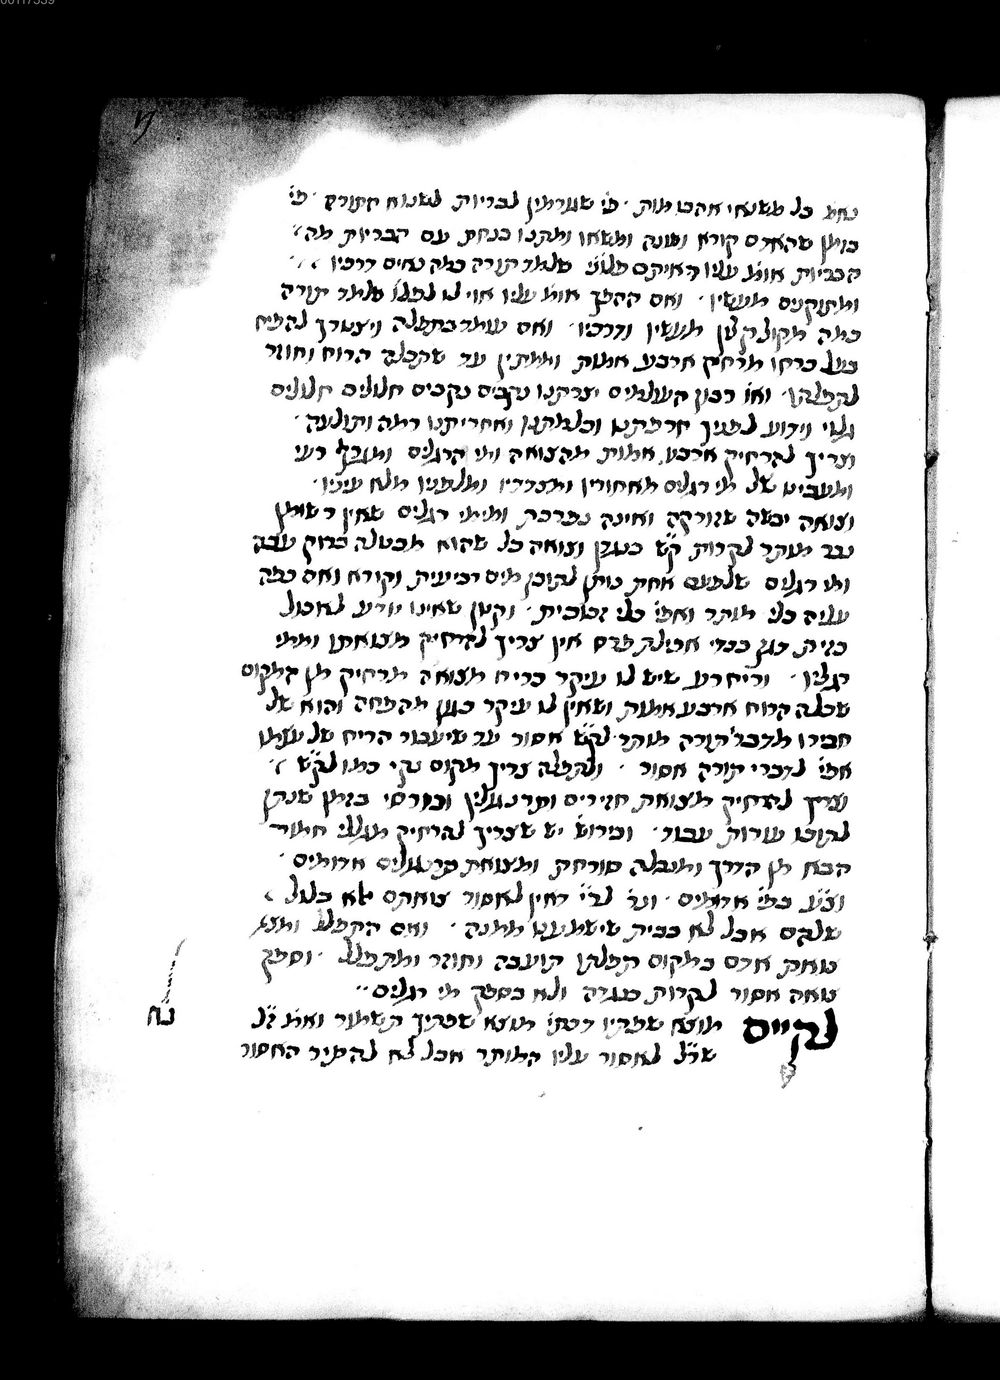 נאמ׳ כל משנאי אהבו מות · פי׳ שגורמין לבריות לשנוא התורה · פי׳
בזמן שהאדם קורא ושונה ומשאו ומתנו בנחת עם הבריות מה
הבריות אומ׳ עליו ראיתם פלוני׳ שלמד תורה כמה נאים דרכיו
ומתוקנים מעשיו · ואם ההפך אומ׳ עליו אוי לו לפלו׳ שלמד תורה
כמה מקולקלין מעשיו ודרכיו · ואם עומד בתפלה ויצטרך להפיח
בעל כרחו מרחיק ארבע אמות וממתין עד שתכלה הרוח וחוזר
לתפלתו · ואו׳ רבון העולמים יצרתנו נקבים נקבים חלולים חלולים
גלוי וידוע לפניך חרפתנו וכלמתנו ואחריתנו רמה ותולעה ·
וצריך להרחיק ארבע אמות מהצואה ומי הרגלים ומגרף רעי
ומעביט של מי רגלים מאחוריו ומצדדיו ומלפניו מלא עיניו ·
וצואה יבשה שזורקה ואינה נפרכת ומימי רגלים שאין רשומן
נכר מותר לקרות ק״ש כנגדן וצואה כל שהוא מבטלה ברוק עבה
ומי רגלים שלפעם אחת נותן לתוכן מים רביעית וקורא ואם כפה
עליה כלי מותר ואפי׳ כלי זכוכית · וקטן שאינו יודע לאכול
כזית דגן בכדי אכילת פרס אין צריך להרחיק מצואתו וממי
רגליו · וריח רע שיש לו עיקר כריח מצואה מרחיק מן המקום
שכלה הרוח ארבע אמות ושאין לו עיקר כגון מהפחה והוא של
חבירו מדברי תורה מותר לק״ש אסור עד שיעבור הריח של עצמו
אפי׳ לדברי תורה אסור · ולתפלה צריך מקום נקי כמו לק״ש
צריך להרחיק מצואת חזירים ותרנגולין ובורסי בזמן שנתן
לתוכו עורות עבוד · ובירוש׳ יש שצריך להרחיק מגללי חמור
הבא מן הדרך ומנבלה סורחת ומצואת תרנגולים אדומים ·
וצ״ע במ׳ אדומים · ונר׳ לר״י דאין לאסור צואתם אלא בלול
שלהם אבל לא בבית שישמעט ממנה · ואם התפלל ומצא
צואת אדם במקום תפלתו תועבה וחוזר ומתפלל · וספק
צואה אסור לקרות כנגדה ולא בספק מי רגלים
לקיים מוצא שפתיו דכתי׳ מוצא שפתיך תשמור ואמ׳ ז״ל
שיכל לאסור עליו המותר אבל לא להתיר האסור
נח